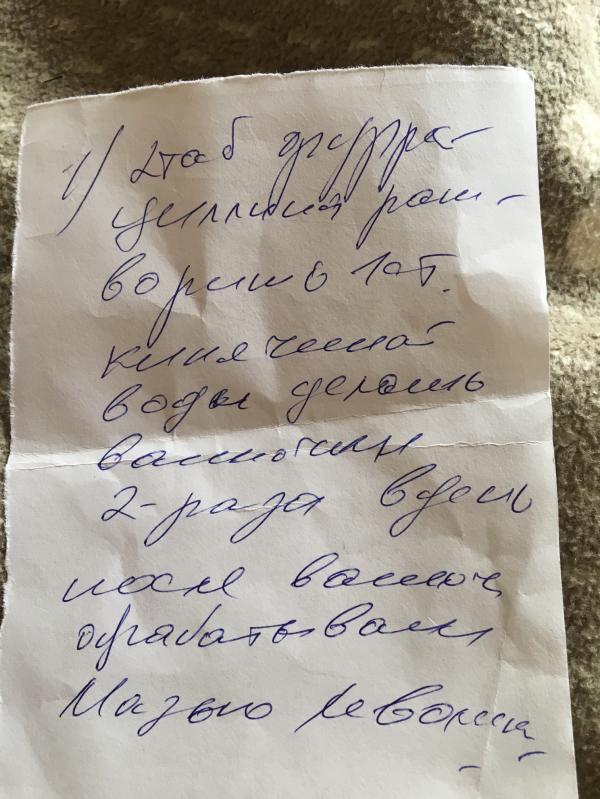 1) 2таб фурра-
циллина раст-
ворить в 1 ст.
кипяченой
воды делать
ванночки
2-раза в день
после ванноч.
обрабатывать
Мазью Левомик